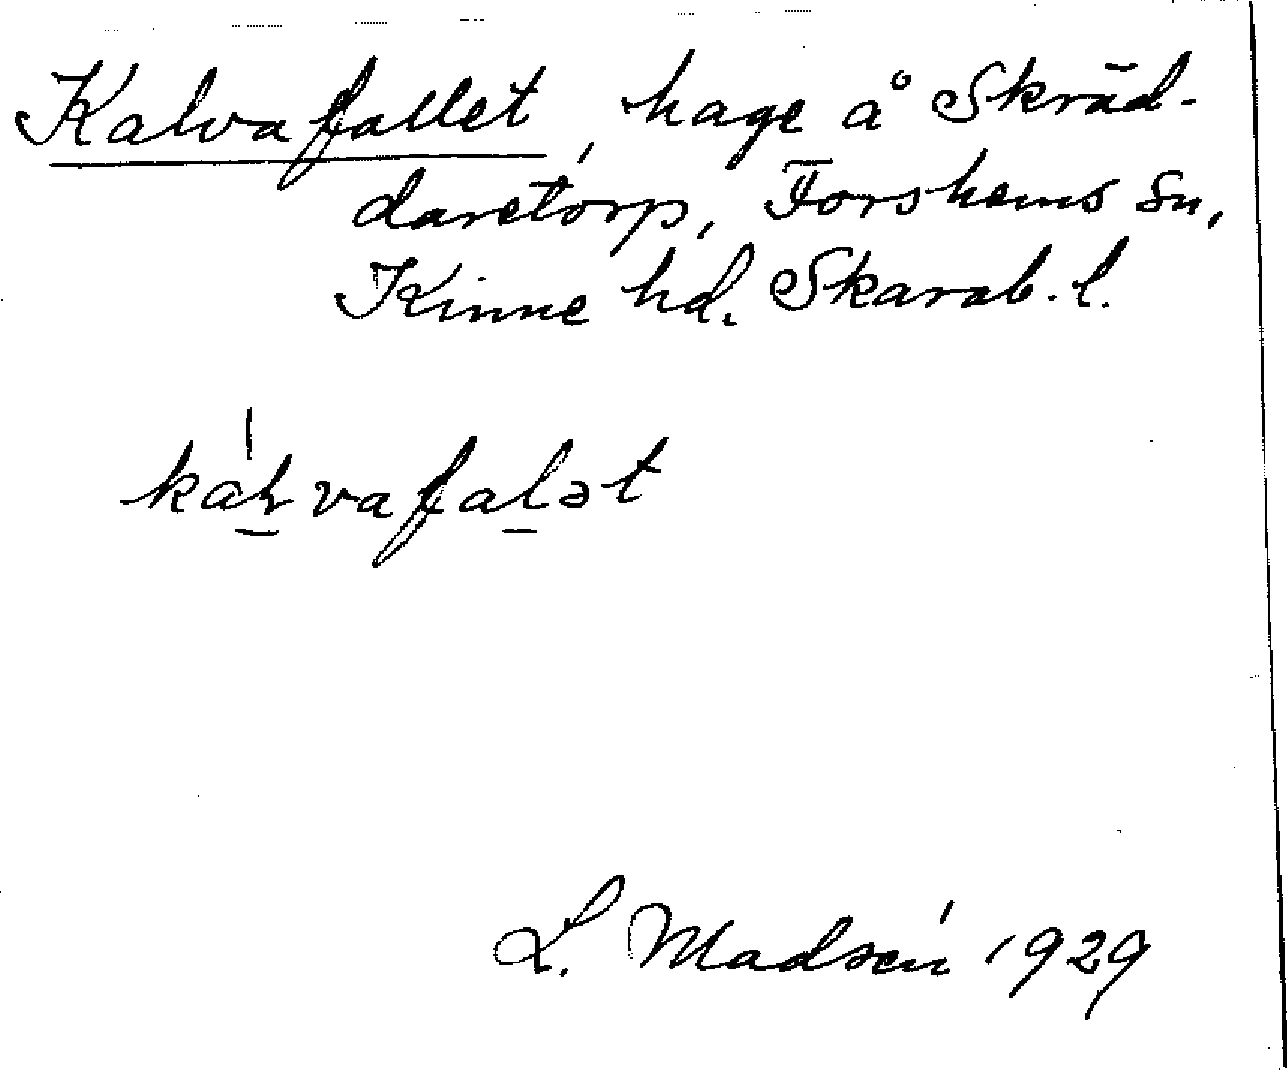 Kalvafallet, hage å Skräd-
daretorp, Forshems sn,
Kinne hd. Skarab. l.
kaƚvafalət
L. Madsén 1929